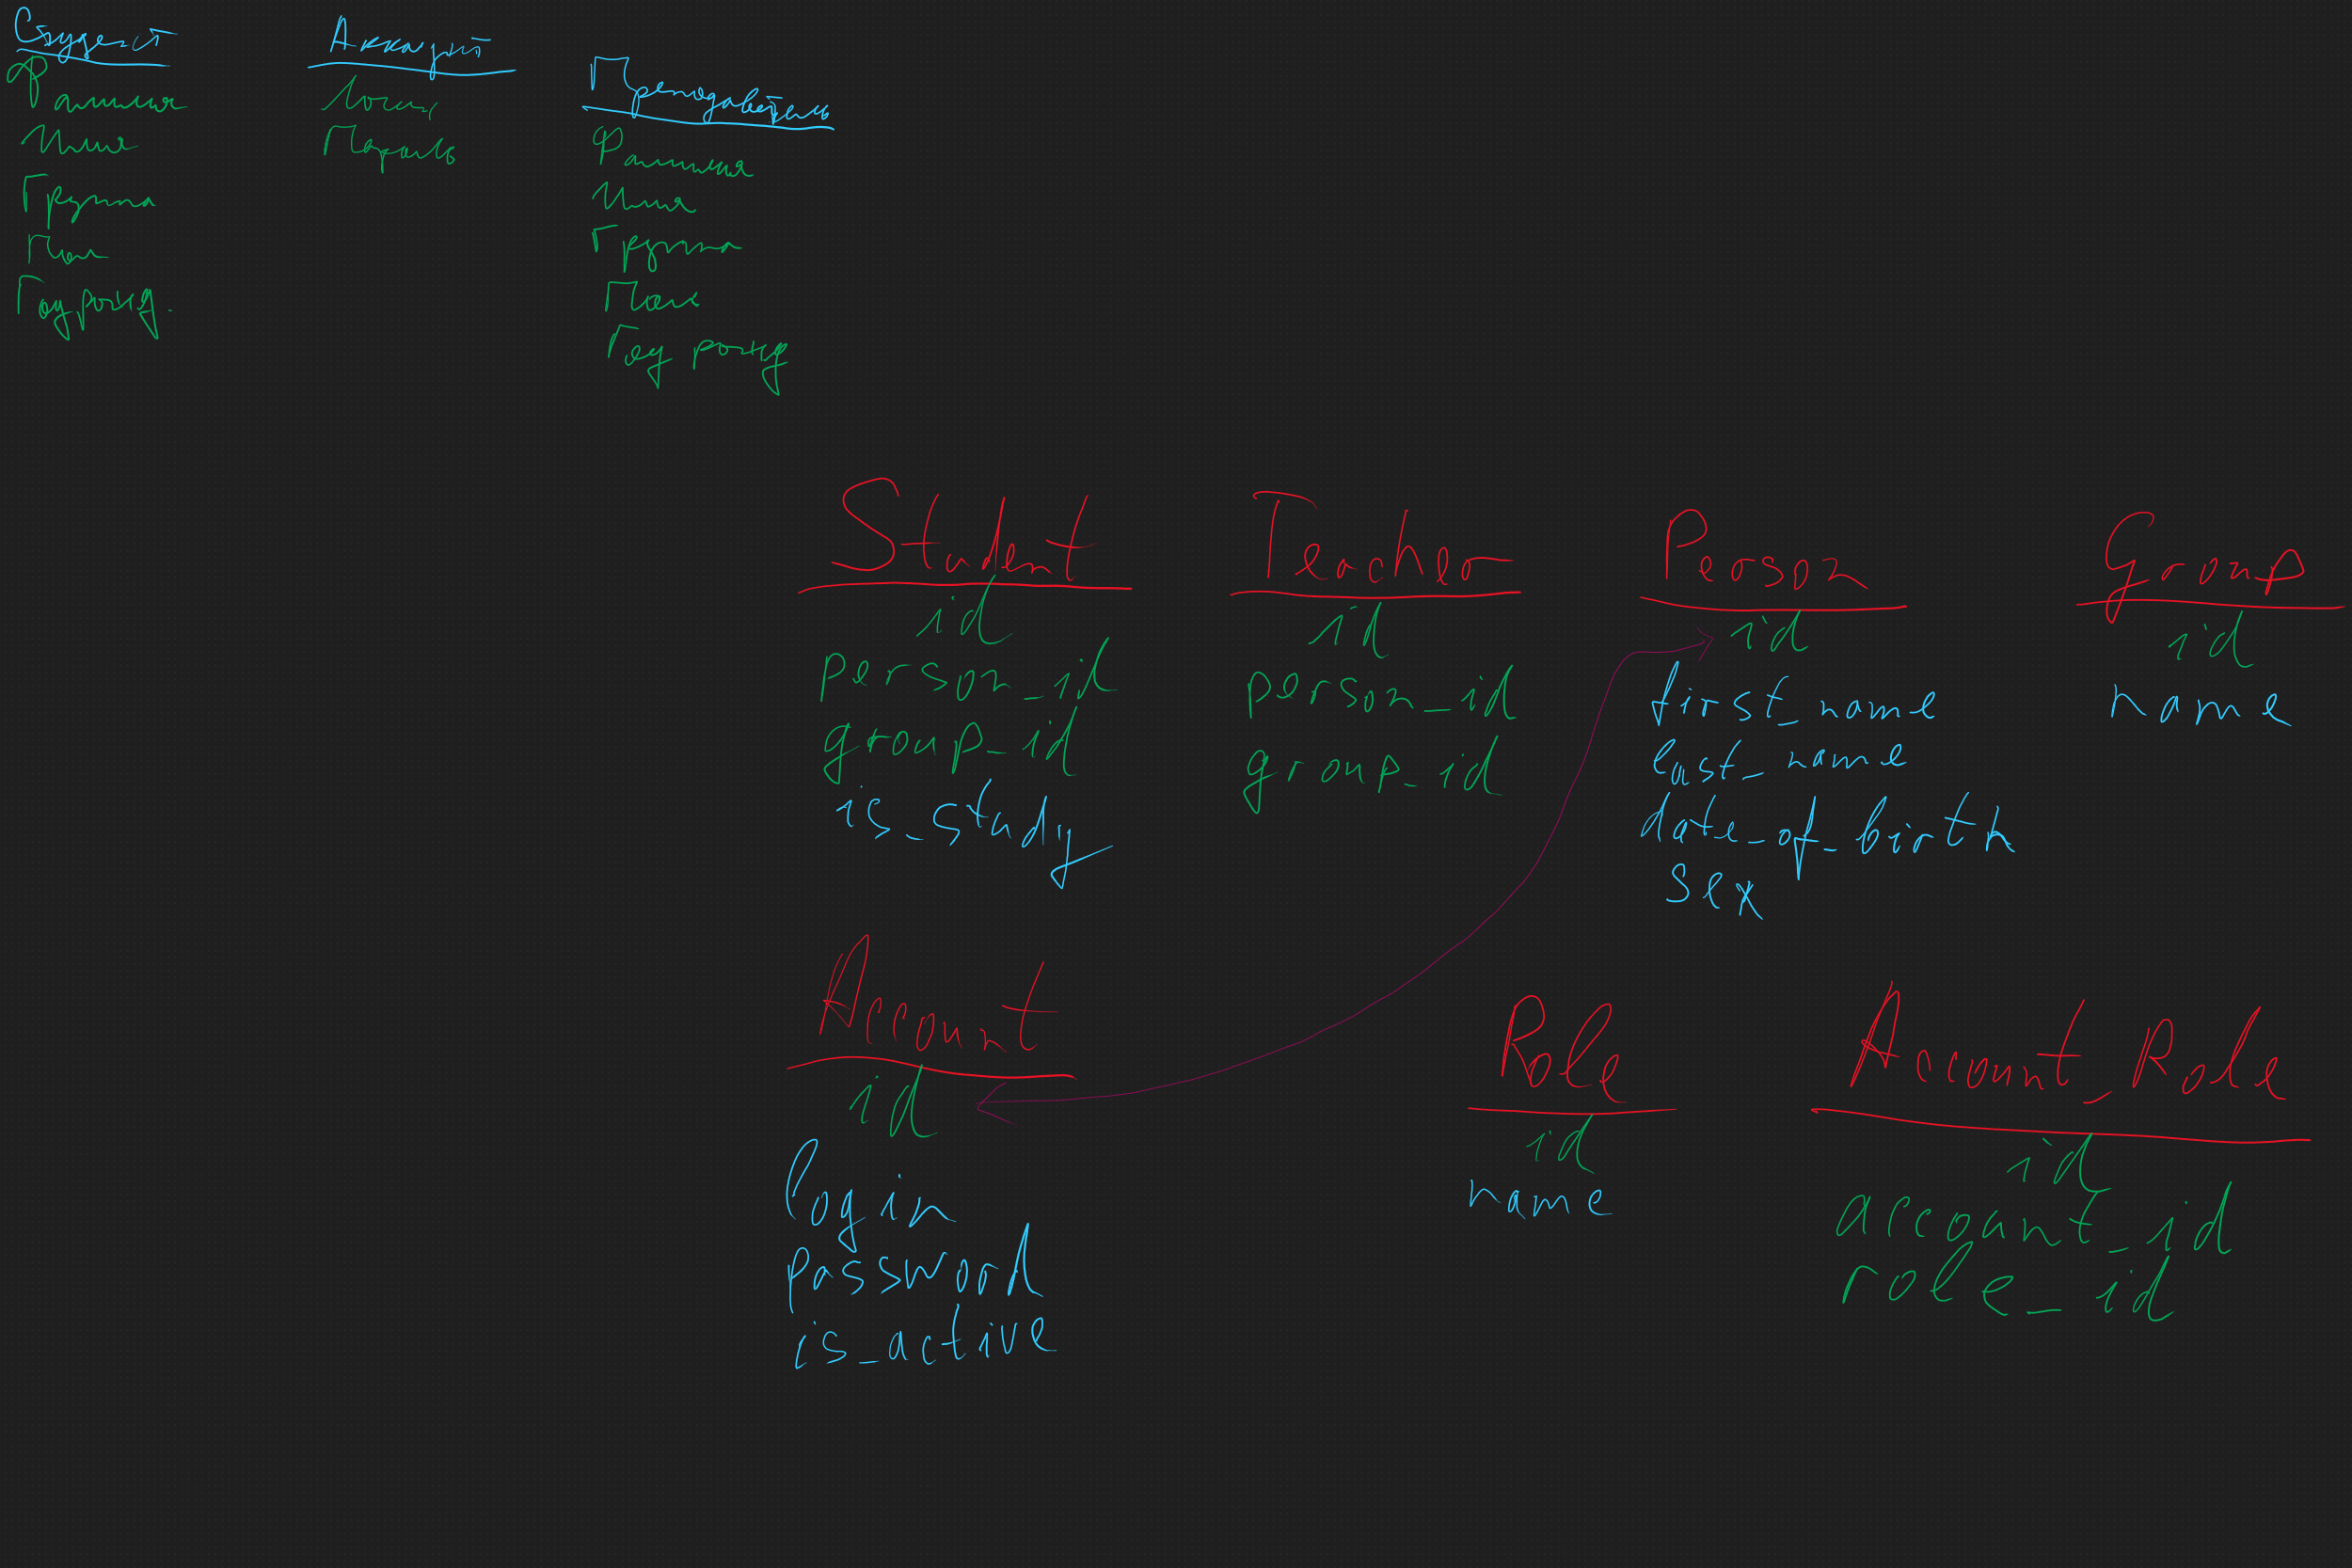 Студент
Фамилия
Имя
Группа
Пол
Год рожд.
Аккаунт
Логин
Пароль
Преподаватель
Фамилия
Имя
Группа
Пол
Год рожд
Student
id
person_id
group_id
is_study
Teacher
id
person_id
group_id
Person
id
first_name
last_name
date_of_birth
sex
Group
id
name
Account
id
login
password
is_active
Role
id
name
Account_Role
id
account_id
role_id